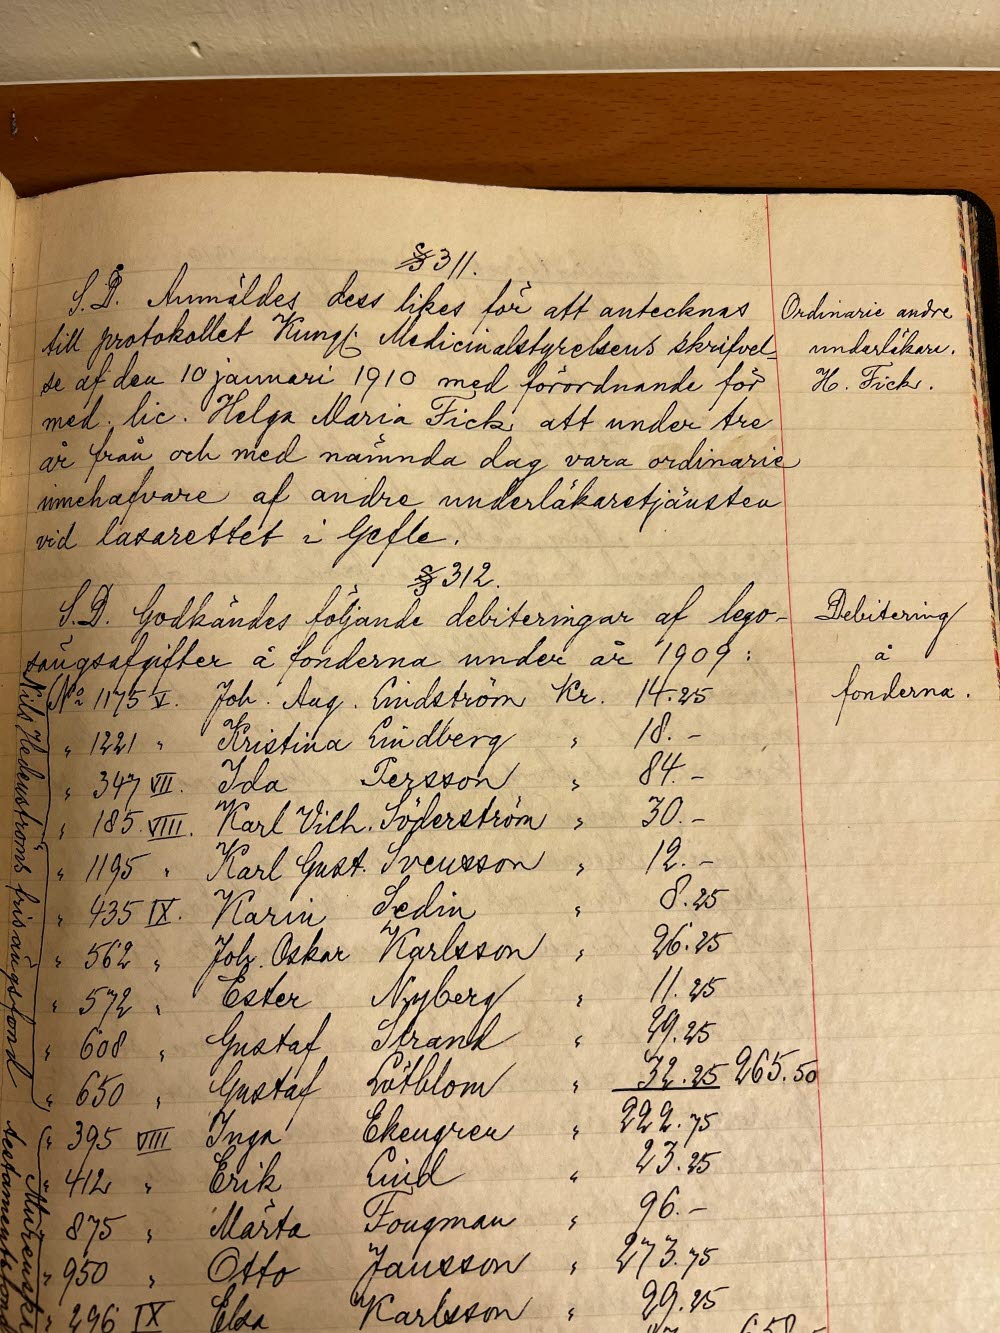 § 311.
S. D. Anmäldes dess likes för att antecknas
till protokollet Kungl. Medicinalstyrelsens skrifvel-
se af den 10 januari 1910 med förordnande för
med. lic. Helga Maria Fick att under tre
år från och med nämnda dag vara ordinarie
innehafvare af andre underläkaretjänsten
vid lasarettet i Gefle.
Ordinarie andre
underläkare.
H. Fick.
§ 312.
S. D. Godkändes följande debiteringar af lego-
sängsafgifter å fonderna under år 1909:
Debitering
å
fonderna.
Nils Hedenströms frisängsfond
No 1175 V. Joh. Aug. Lindström Kr. 14.25
" 1221 " Kristina Lindberg " 18.-
" 347 VII. Ida Persson " 84.-
" 185 VIII. Karl Vilh. Söderström " 30.-
" 1195 " Karl Gust. Svensson " 12.-
" 435 IX. Karin Sedin " 8.25
" 562 " Joh. Oskar Karlsson " 26.25
" 572 " Ester Nyberg " 11.25
" 608 " Gustaf Strand " 29.25
" 650 " Gustaf Lötblom " 32.25 265.50
testamentsfond
" 395 VIII Inga Ekengren " 222.75
" 412 " Erik Lind " 23.25
" 875 " Märta Fougman " 96.-
" 950 " Otto Jansson " 273.75
" 296 IX Elsa Karlsson " 29.25